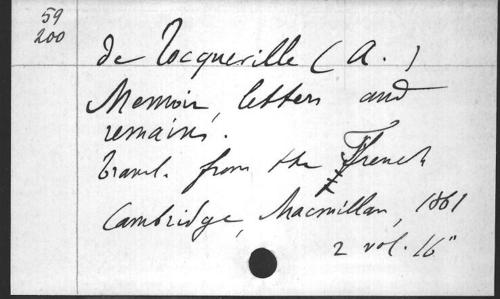 59
200
de Tocqueville (A.)
Memoir, letters and
remains.
transl. from the French
Cambridge, Macmillan, 1861
2 vol. 16°